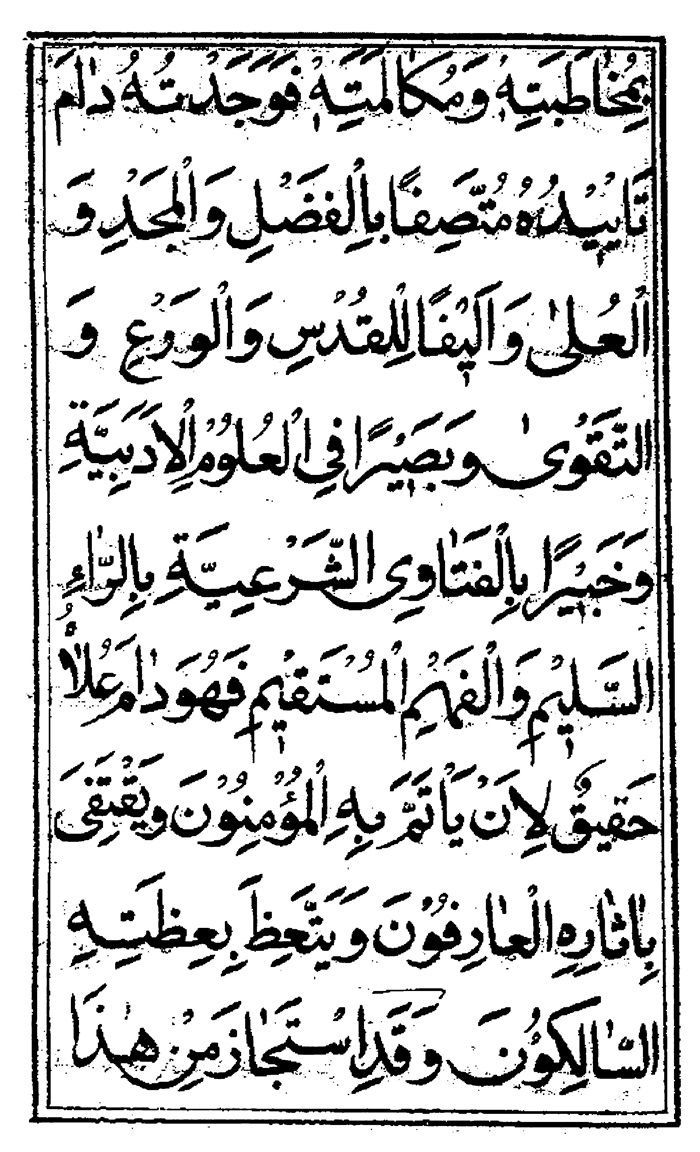 بِمُخَاطَبَتِهٖ وَمُكَالَمَتِهٖ فَوَجَدْتُهُ دَامَ
تَاْيِيْدُهُ مُتَّصِفًا بِالْفَضْلِ وَالْمَجْدِ وَ
الْعُلىٰ وَاَلِيْفًا لِلْقُدْسِ وَالْوَرَعِ وَ
التَّقْوٰى وَبَصِيْرًا فِي الْعُلُوْمِ الْاَدَبِيَّةِ
وَخَبِيْرًا بِالْفَتَاوِى الشَّرْعِيَّةِ بِالرَّاءِ
السَّلِيْمِ وَالْفَهْمِ الْمُسْتَقِيْمِ فَهُوَ دَامَ عُلَاهُ
حَقِيْقٌ لِاَنْ يَاْتَمَّ بِهِ الْمُؤْمِنُوْنَ وَيَقْتَفِىَ
بِاٰثَارِهِ الْعَارِفُوْنَ وَيَتَّعِظَ بِعِظَتِهِ
السَّالِكُوْنَ وَقَدِ اسْتَجَازَ مِنْ هٰذَا